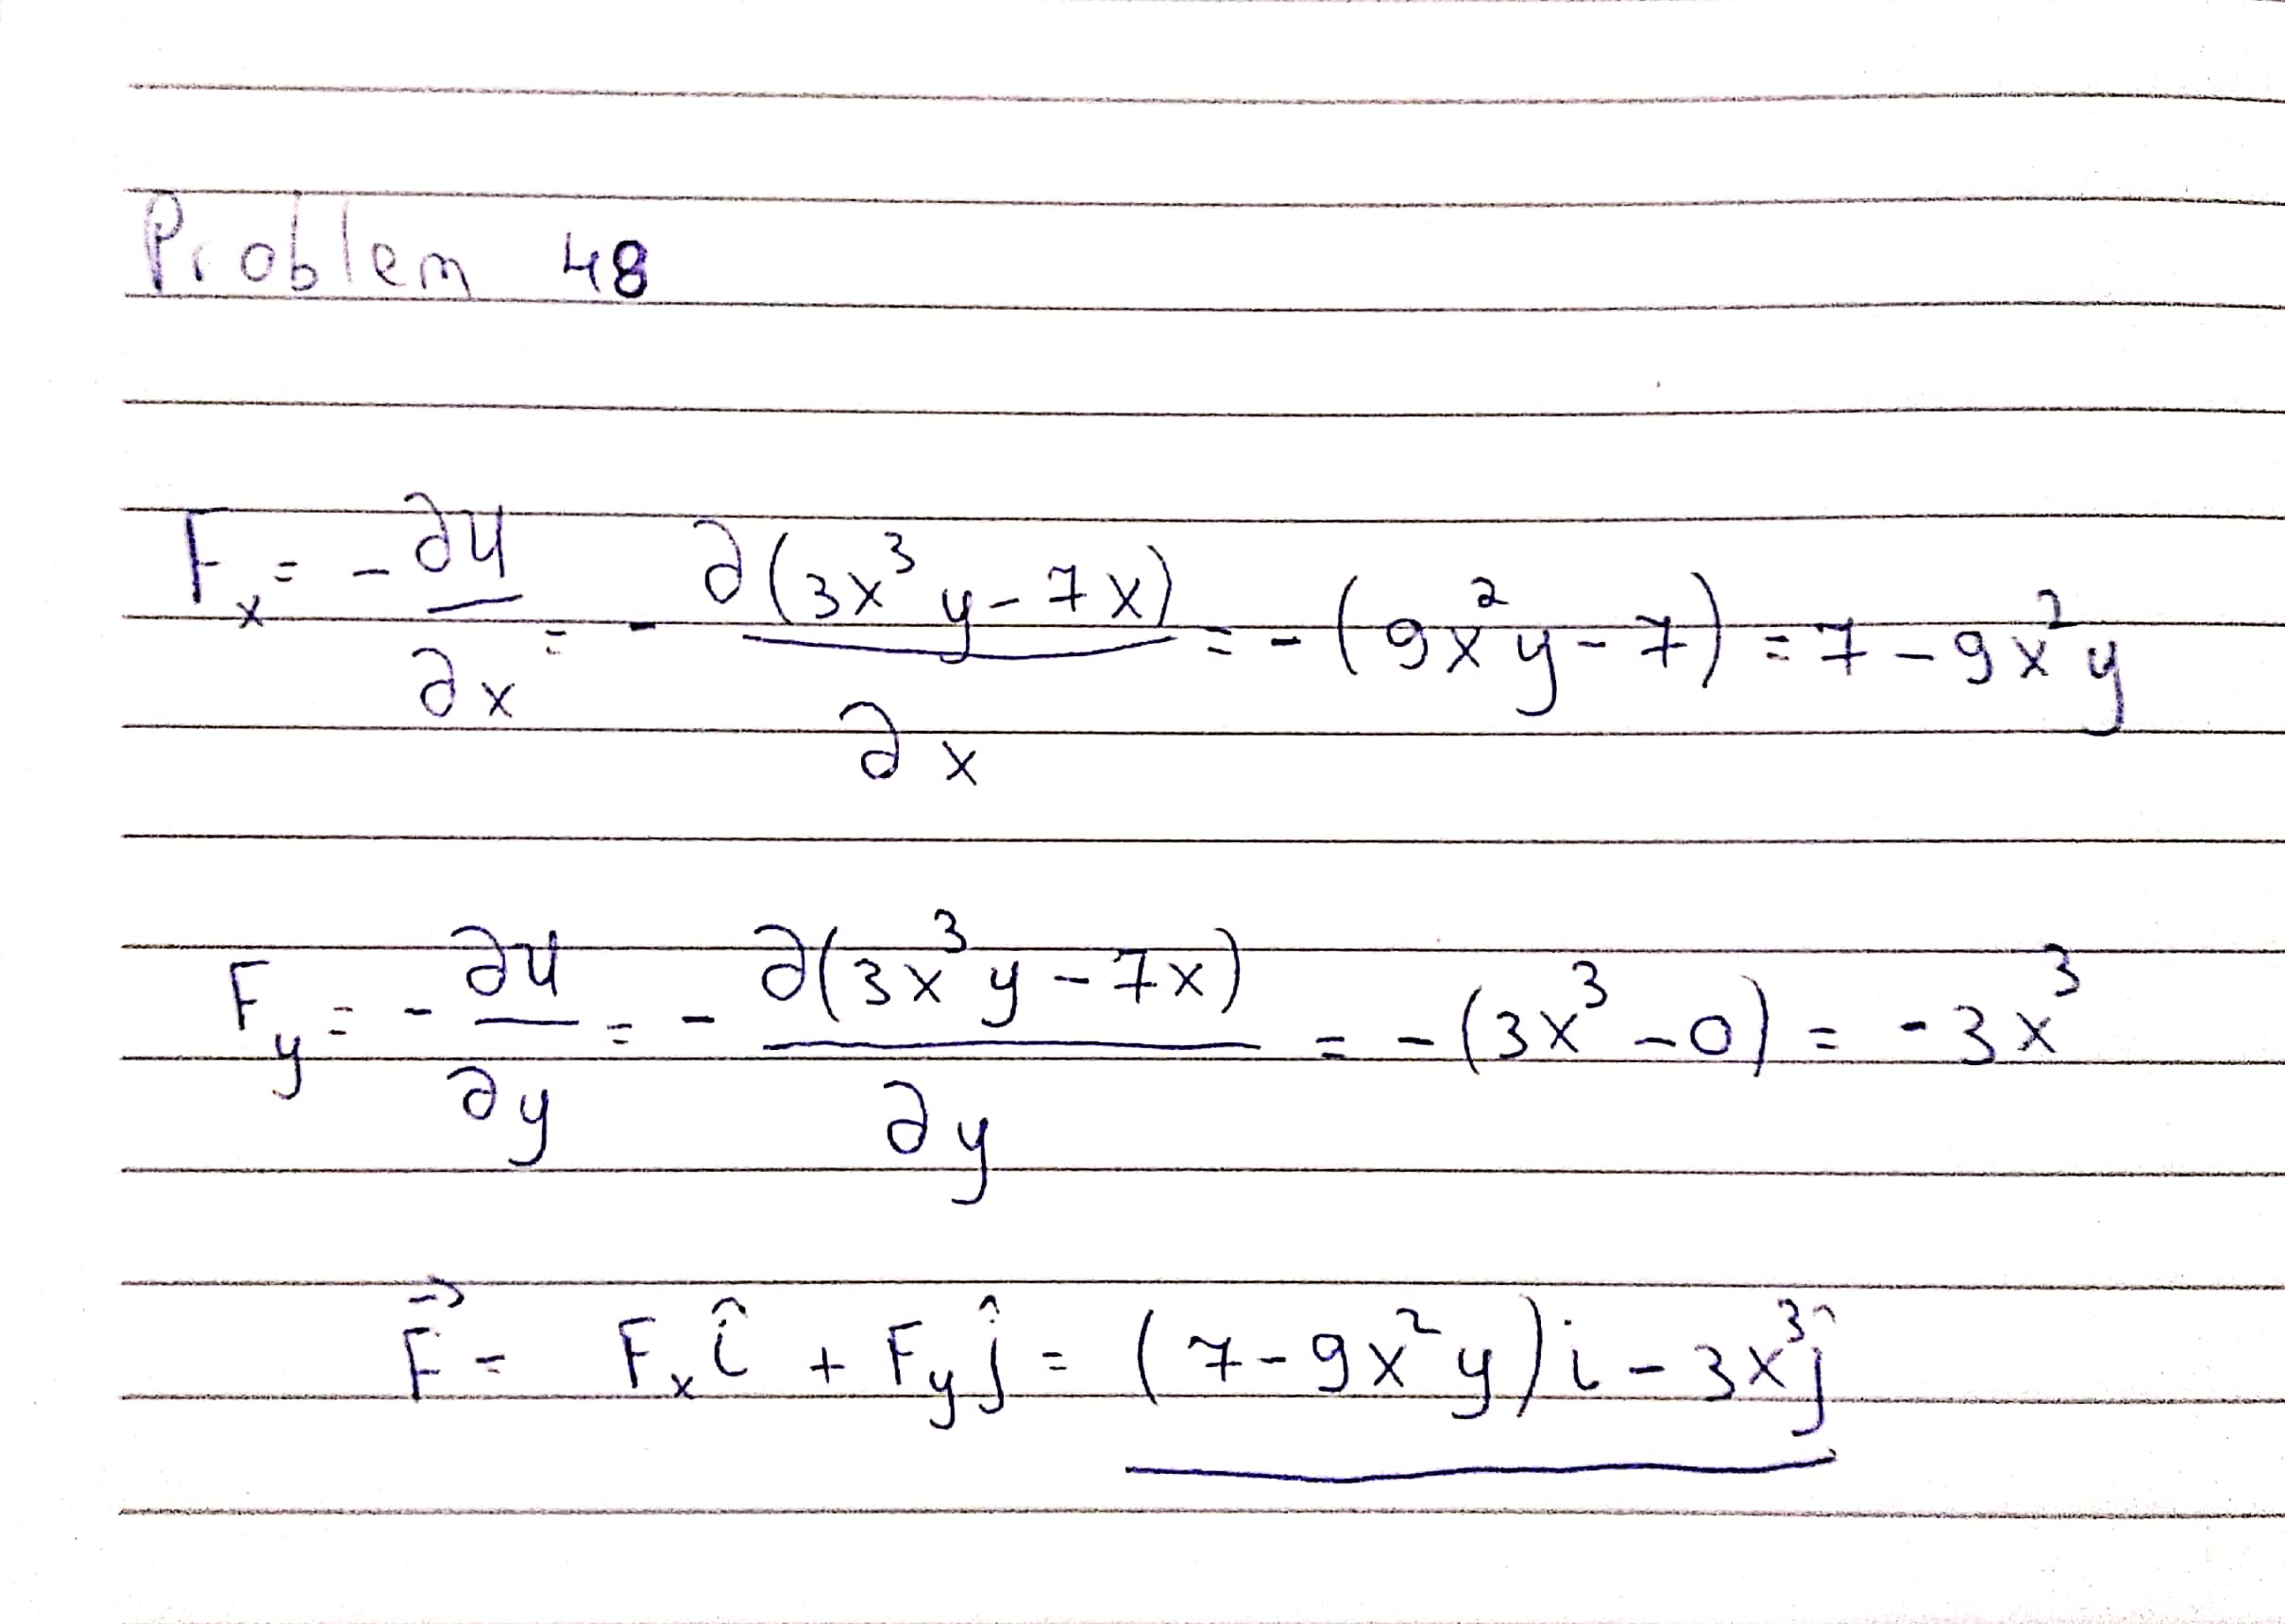 Problem 48
F_x = - ∂U/∂x = - ∂(3x³y - 7x)/∂x = - (9x²y - 7) = 7 - 9x²y
F_y = - ∂U/∂y = - ∂(3x³y - 7x)/∂y = - (3x³ - 0) = - 3x³
F⃗ = F_x î + F_y ĵ = (7 - 9x²y) i - 3x³ ĵ